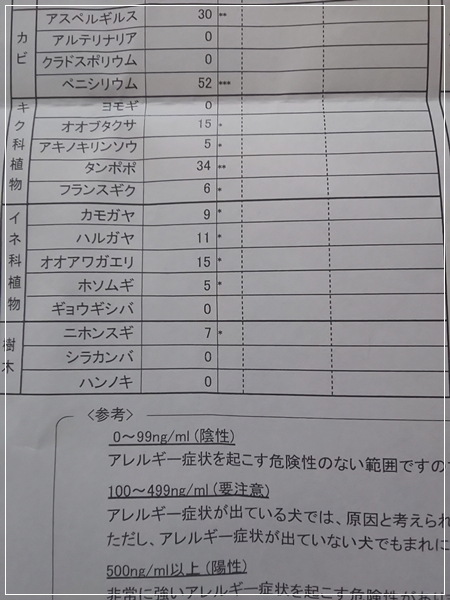 カビ
アスペルギルス 30 **
アルテリナリア 0
クラドスポリウム 0
ペニシリウム 52 ***
キク科植物
ヨモギ 0
オオブタクサ 15 *
アキノキリンソウ 5 *
タンポポ 34 **
フランスギク 6 *
イネ科植物
カモガヤ 9 *
ハルガヤ 11 *
オオアワガエリ 15 *
ホソムギ 5 *
ギョウギシバ 0
樹木
ニホンスギ 7 *
シラカンバ 0
ハンノキ 0
〈参考〉
0～99ng/ml(陰性)
アレルギー症状を起こす危険性のない範囲ですの
100～499ng/ml(要注意)
アレルギー症状が出ている犬では、原因と考えられ
ただし、アレルギー症状が出ていない犬でもまれに
500ng/ml以上(陽性)
非常に強いアレルギー症状を起こす危険性があり